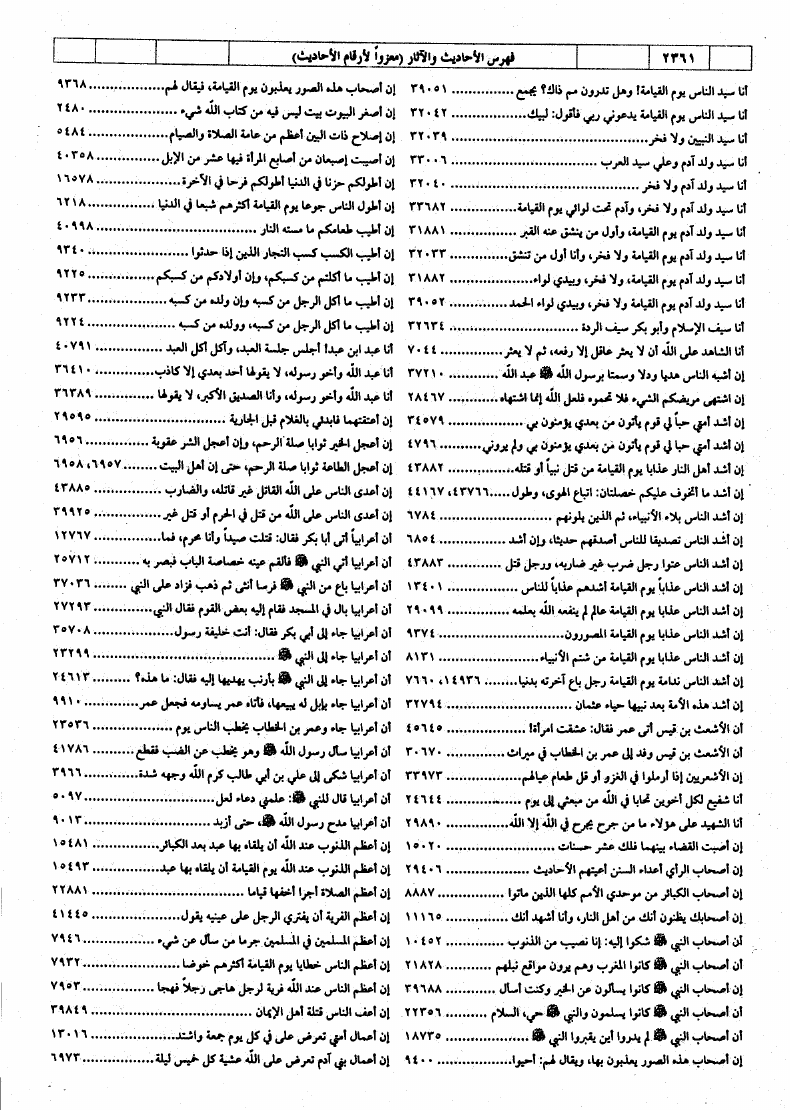 ٢٣٦١
فهرس الأحاديث والآثار (معزواً لأرقام الأحاديث)
أنا سيد الناس يوم القيامة! وهل تدرون مم ذاك؟ يجمع ............... ٣٩٠٥١
أنا سيد الناس يوم القيامة يدعوني ربي فأقول: لبيك ............... ٣٢٠٤٢
أنا سيد النبيين ولا فخر ............... ٣٢٠٣٩
أنا سيد ولد آدم وعلي سيد العرب ............... ٣٣٠٠٦
أنا سيد ولد آدم ولا فخر ............... ٣٢٠٤٠
أنا سيد ولد آدم ولا فخر، وآدم تحت لوائي يوم القيامة ............... ٣٣٦٨٢
أنا سيد ولد آدم يوم القيامة، وأول من ينشق عنه القبر ............... ٣١٨٨١
أنا سيد ولد آدم يوم القيامة ولا فخر، وأنا أول من تنشق ............... ٣٢٠٣٣
أنا سيد ولد آدم يوم القيامة، ولا فخر، وبيدي لواء ............... ٣١٨٨٢
أنا سيد ولد آدم يوم القيامة ولا فخر، وبيدي لواء الحمد ............... ٣٩٠٥٢
أنا سيف الإسلام وأبو بكر سيف الردة ............... ٣٢٦٣٤
أنا الشاهد على الله أن لا يعثر عاقل إلا رفعه، ثم لا يعثر ............... ٧٠٤٤
إن أشبه الناس هديا ودلا وسمتا برسول الله ﷺ عبد الله ............... ٣٧٢١٠
إن اشتهى مريضكم الشيء فلا تحموه فلعل الله إنما اشتهاه ............... ٢٨٤٦٧
إن أشد أمتي حباً لي قوم يأتون من بعدي يؤمنون بي ............... ٣٤٥٧٩
إن أشد أمتي حبا لي قوم يأتون من بعدي يؤمنون بي ولم يروني ............... ٤٧٩٦
إن أشد أهل النار عذابا يوم القيامة من قتل نبياً أو قتله ............... ٤٣٨٨٢
إن أشد ما أتخوف عليكم خصلتان: اتباع الهوى، وطول ..... ٤٣٧٦٦، ٤٤١٦٧
إن أشد الناس بلاء الأنبياء، ثم الذين يلونهم ............... ٦٧٨٤
إن أشد الناس تصديقا للناس أصدقهم حديثا، وإن أشد ............... ٦٨٥٤
إن أشد الناس عتوا رجل ضرب غير ضاربه، ورجل قتل ............... ٤٣٨٨٣
إن أشد الناس عذاباً يوم القيامة أشدهم عذاباً للناس ............... ١٣٤٠١
إن أشد الناس عذابا يوم القيامة عالم لم ينفعه الله بعلمه ............... ٢٩٠٩٩
إن أشد الناس عذابا يوم القيامة المصورون ............... ٩٣٧٤
إن أشد الناس عذابا يوم القيامة من شتم الأنبياء ............... ٨١٣١
إن أشد الناس ندامة يوم القيامة رجل باع آخرته بدنيا ........ ١٤٩٣٦، ٧٦٦٠
إن أشد هذه الأمة بعد نبيها حياء عثمان ............... ٣٢٧٩٤
أن الأشعث بن قيس أتى عمر فقال: عشقت امرأة! ............... ٤٥٦٤٥
أن الأشعث بن قيس وفد إلى عمر بن الخطاب في ميراث ............... ٣٠٦٧٠
إن الأشعريين إذا أرملوا في الغزو أو قل طعام عيالهم ............... ٣٣٩٧٣
أنا شفيع لكل أخوين تحابا في الله من مبعثي إلى يوم ............... ٢٤٦٤٤
أنا الشهيد على هؤلاء ما من جرح يجرح في الله إلا الله ............... ٢٩٨٩٠
إن أصبت القضاء بينهما فلك عشر حسنات ............... ١٥٠٢٠
إن أصحاب الرأي أعداء السنن أعيتهم الأحاديث ............... ٢٩٤٠٦
إن أصحاب الكبائر من موحدي الأمم كلها الذين ماتوا ............... ٨٨٨٧
إن أصحابك يظنون أنك من أهل النار، وأنا أشهد أنك ............... ١١١٦٥
أن أصحاب النبي ﷺ شكوا إليه: إنا نصيب من الذنوب ............... ١٠٤٥٢
أن أصحاب النبي ﷺ كانوا المغرب وهم يرون مواقع نبلهم ............... ٢١٨٢٨
إن أصحاب النبي ﷺ كانوا يسألون عن الخير وكنت أسأل ............... ٣٩٦٨٨
أن أصحاب النبي ﷺ كانوا يسلمون والنبي ﷺ حي، السلام ............... ٢٢٣٥٦
أن أصحاب النبي ﷺ لم يدروا أين يقبروا النبي ﷺ ............... ١٨٧٣٥
إن أصحاب هذه الصور يعذبون بها، ويقال لهم: أحيوا ............... ٩٤٠٠
إن أصحاب هذه الصور يعذبون يوم القيامة، فيقال لهم ............... ٩٣٦٨
إن أصفر البيوت بيت ليس فيه من كتاب الله شيء ............... ٢٤٨٠
إن إصلاح ذات البين أعظم من عامة الصلاة والصيام ............... ٥٤٨٤
إن أصيبت إصبعان من أصابع المرأة فيها عشر من الإبل ............... ٤٠٣٥٨
إن أطولكم حزنا في الدنيا أطولكم فرحا في الآخرة ............... ١٦٥٧٨
إن أطول الناس جوعا يوم القيامة أكثرهم شبعا في الدنيا ............... ٦٢١٨
إن أطيب طعامكم ما مسته النار ............... ٤٠٩٩٨
إن أطيب الكسب كسب التجار الذين إذا حدثوا ............... ٩٣٤٠
إن أطيب ما أكلتم من كسبكم، وإن أولادكم من كسبكم ............... ٩٢٢٥
إن أطيب ما أكل الرجل من كسبه وإن ولده من كسبه ............... ٩٢٣٣
إن أطيب ما أكل الرجل من كسبه، وولده من كسبه ............... ٩٢٢٤
أنا عبد ابن عبد! أجلس جلسة العبد، وآكل أكل العبد ............... ٤٠٧٩١
أنا عبد الله وأخو رسوله، لا يقولها أحد بعدي إلا كاذب ............... ٣٦٤١٠
أنا عبد الله وأخو رسوله، وأنا الصديق الأكبر، لا يقولها ............... ٣٦٣٨٩
إن أعتقتهما فابدئي بالغلام قبل الجارية ............... ٢٩٥٩٥
إن أعجل الخير ثوابا صلة الرحم، وإن أعجل الشر عقوبة ............... ٦٩٥٦
إن أعجل الطاعة ثوابا صلة الرحم، حتى إن أهل البيت ........ ٦٩٥٧، ٦٩٥٨
إن أعدى الناس على الله القاتل غير قاتله، والضارب ............... ٤٣٨٨٥
إن أعدى الناس على الله من قتل في الحرم أو قتل غير ............... ٣٩٩٢٥
أن أعرابياً أتى أبا بكر فقال: قتلت صيداً وأنا محرم، فما ............... ١٢٧٦٧
أن أعرابيا أتي النبي ﷺ فألقم عينه خصاصة الباب فبصر به ............... ٢٥٧١٢
أن أعرابيا باع من النبي ﷺ فرسا أنثى ثم ذهب فزاد على النبي ............... ٣٧٠٣٦
أن أعرابيا بال في المسجد فقام إليه بعض القوم فقال النبي ............... ٢٧٢٩٣
أن أعرابيا جاء إلى أبي بكر فقال: أنت خليفة رسول ............... ٣٥٧٠٨
أن أعرابيا جاء إلى النبي ﷺ ............... ٢٣٢٩٩
أن أعرابيا جاء إلى النبي ﷺ بأرنب يهديها إليه فقال: ما هذه؟ ............... ٢٤٦١٣
أن أعرابيا جاء بإبل له يبيعها، فأتاه عمر يساومه فجعل عمر ............... ٩٩١٠
أن أعرابيا جاء وعمر بن الخطاب يخطب الناس يوم ............... ٢٣٥٣٦
أن أعرابيا سأل رسول الله ﷺ وهو يخطب عن الضب فقطع ............... ٤١٧٨٦
أن أعرابيا شكى إلى علي بن أبي طالب كرم الله وجهه شدة ............... ٣٩٦٦
أن أعرابيا قال للنبي ﷺ: علمني دعاء لعل ............... ٥٠٩٧
أن أعرابيا مدح رسول الله ﷺ، حتى أزبد ............... ٩٠١٣
إن أعظم الذنوب عند الله أن يلقاه بها عبد بعد الكبائر ............... ١٥٤٨١
إن أعظم الذنوب عند الله يوم القيامة أن يلقاه بها عبد ............... ١٥٤٩٣
إن أعظم الصلاة أجرا أخفها قياما ............... ٢٢٨٨١
إن أعظم الفرية أن يفتري الرجل على عينيه يقول ............... ٤١٤٤٥
إن أعظم المسلمين في المسلمين جرما من سأل عن شيء ............... ٧٩٤٦
إن أعظم الناس خطايا يوم القيامة أكثرهم خوضا ............... ٧٩٣٢
إن أعظم الناس عند الله فرية لرجل هاجى رجلاً فهجا ............... ٧٩٥٣
إن أعف الناس قتلة أهل الإيمان ............... ٣٩٨٤٩
إن أعمال أمتي تعرض على في كل يوم جمعة واشتد ............... ١٣٠١٦
إن أعمال بني آدم تعرض على الله عشية كل خميس ليلة ............... ٦٩٧٣